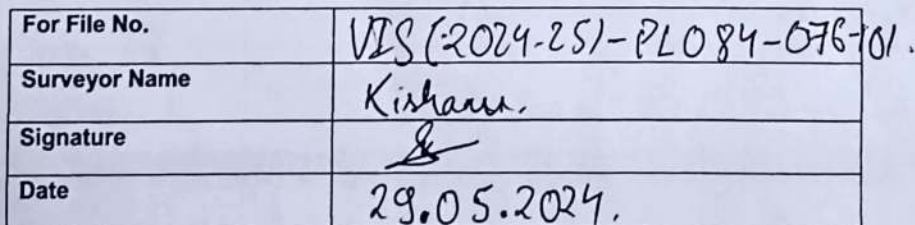 For File No. VIS(2024-25)-PL084-076-101.
Surveyor Name
Signature
Date 29.05.2024.